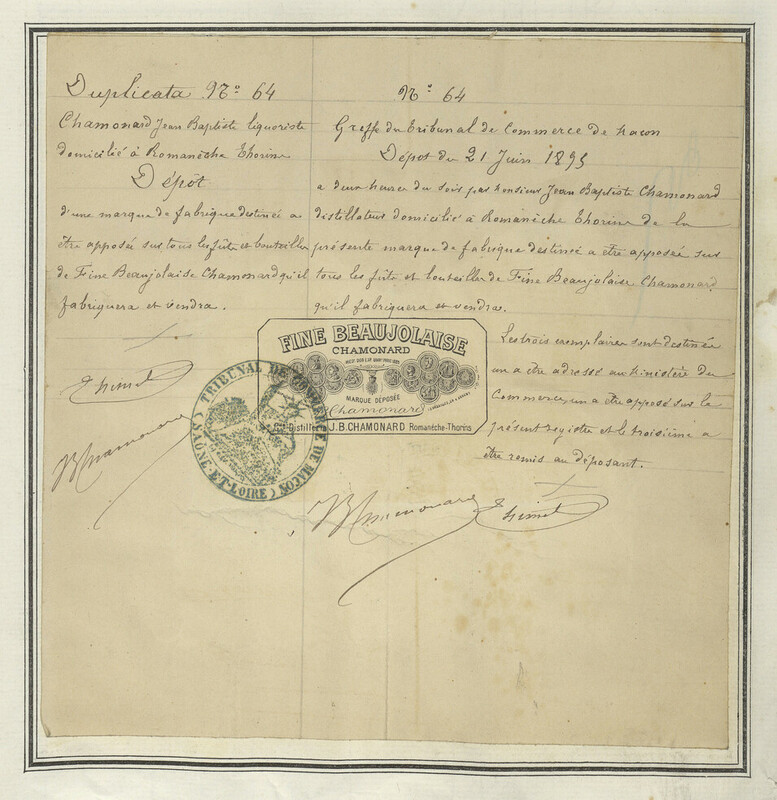 Duplicata No 64
Chamonard Jean Baptiste liquoriste
domicilié à Romanèche Thorins
Dépôt
d'une marque de fabrique destinée a
être apposée sur tous les fûts et bouteilles
de Fine Beaujolaise Chamonard qu'il
fabriquera et vendra.
Thimet
JBChamonard
No 64
Greffe du Tribunal de Commerce de Macon
Dépot du 21 Juin 1895
a deux heures du soir par Monsieur Jean Baptiste Chamonard
distillateur domicilié à Romanèche Thorins de la
présente marque de fabrique destinée a être apposée sur
tous les fûts et bouteilles de Fine Beaujolaise Chamonard
qu'il fabriquera et vendra.
FINE BEAUJOLAISE
CHAMONARD
MARQUE DÉPOSÉE
Chamonard
J.B.CHAMONARD Romanèche-Thorins
TRIBUNAL DE COMMERCE DE MACON
(SAÔNE-ET-LOIRE)
Les trois exemplaires sont destinés
un a être adressé au Ministère du
Commerce, un a être apposé sur le
présent registre et le troisième a
être remis au déposant.
JBChamonard
Thimet